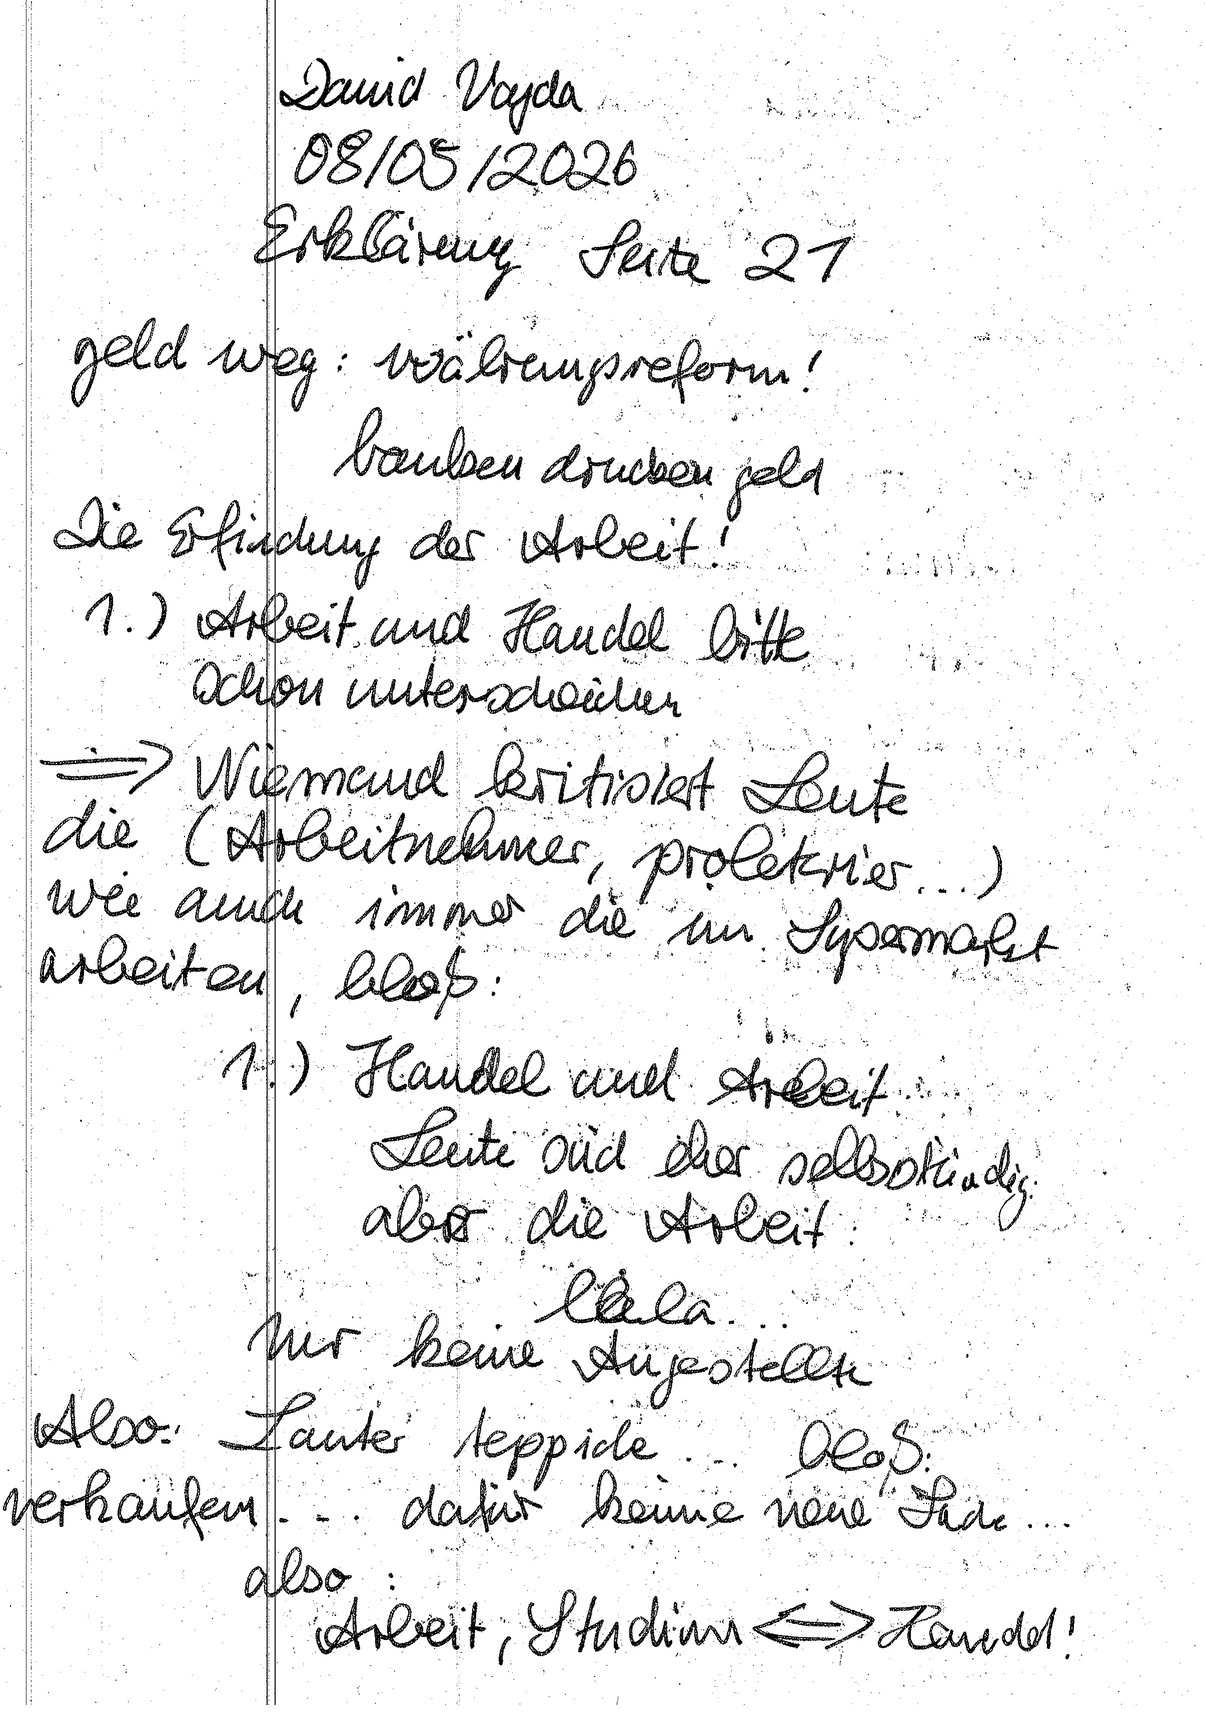 David Vajda
08/05/2026
Erklärung Seite 21
geld weg: währungsreform!
banken drucken geld
Die Erfindung der Arbeit!
1.) Arbeit und Handel bitte
schon unterscheiden
=> Niemand kritisiert Leute
die (Arbeitnehmer, proletarier...)
wie auch immer die im Supermarkt
arbeiten, bloß:
1.) Handel und Arbeit
Leute sind eher selbständig
aber die Arbeit:
lala...
Nur keine Angestellte
Also: Lauter teppiche ... bloß:
verkaufen ... dafür keine neue ...
also :
Arbeit, Studium <=> Handel!